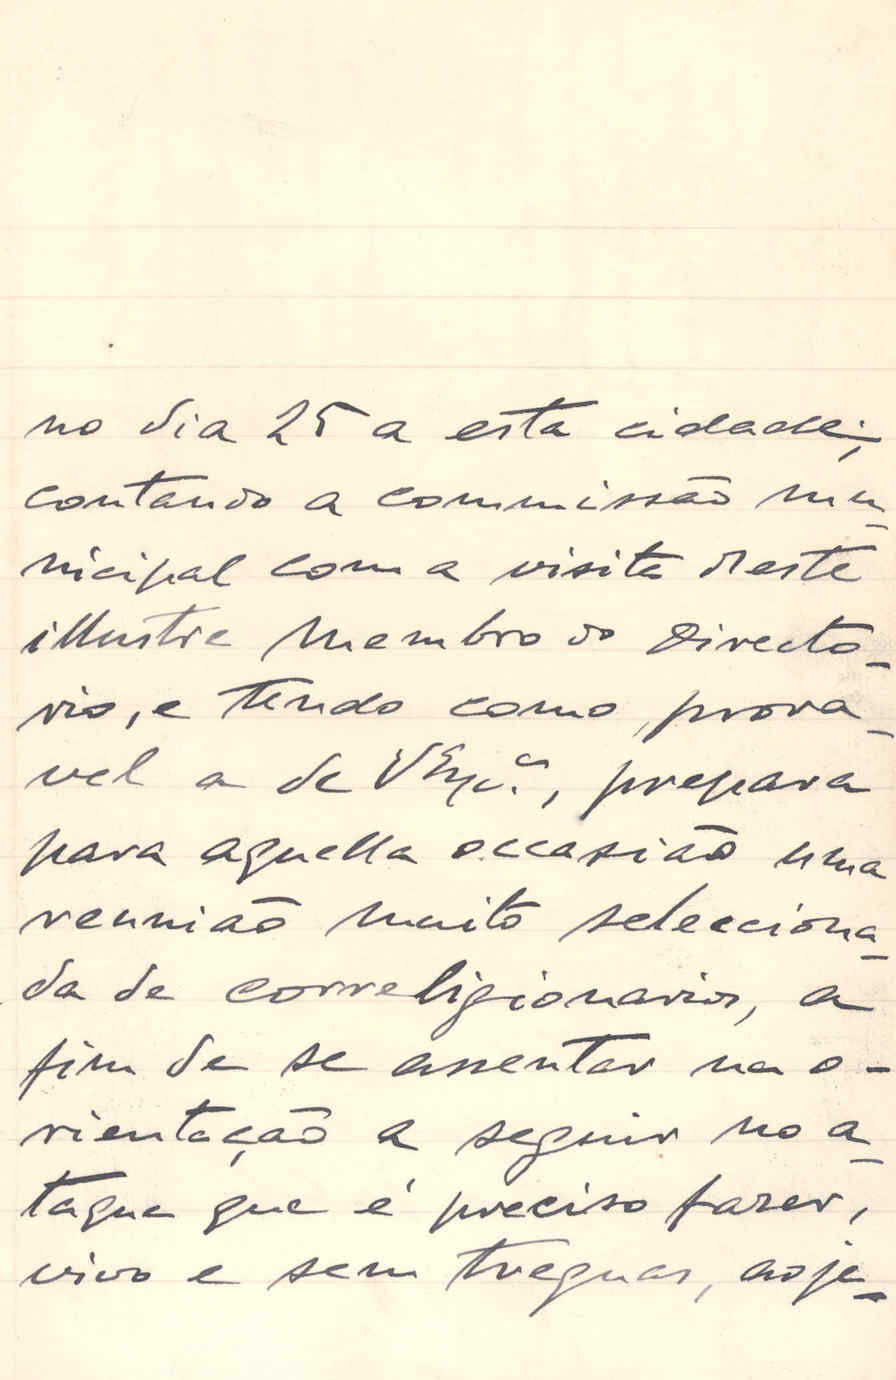 no dia 25 a esta cidade;
contando a commissão mu-
nicipal com a visita d'este
illustre membro do Directo-
rio, e tendo como prova-
vel a de VExc.ª, prepara
para aquella occasião uma
reunião muito selecciona-
da de correligionarios, a
fim de se assentar na o-
rientação a seguir no a-
taque que é preciso fazer,
vivo e sem treguas, ao je-